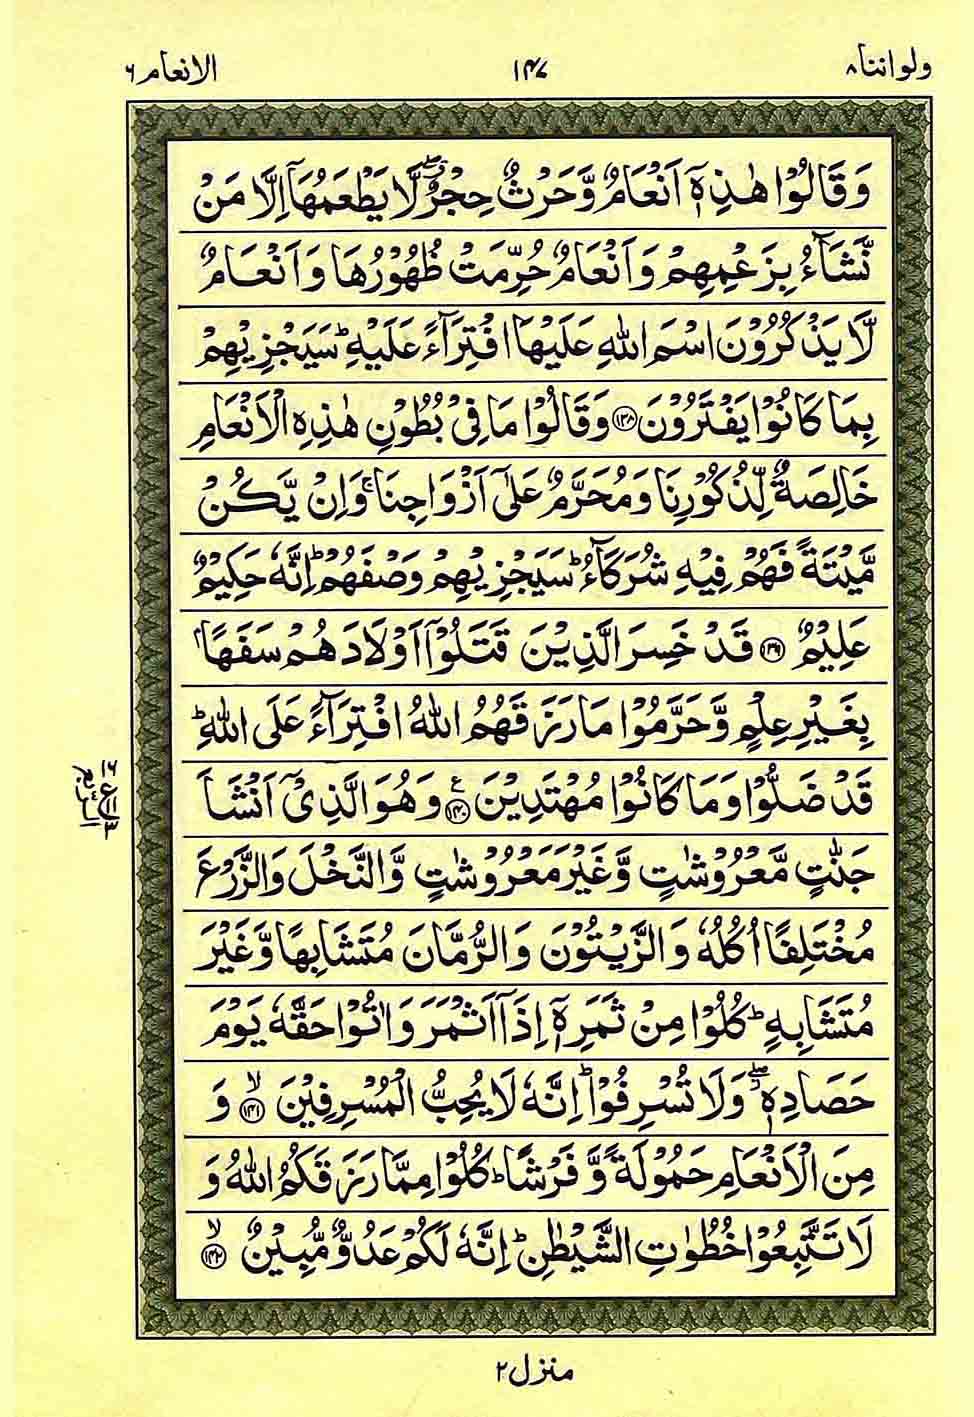 ولواننا ۸
۱۴۷
الانعام ۶
وَقَالُوْا هٰذِهٖۤ اَنْعَامٌ وَّحَرْثٌ حِجْرٌ ۖۗ لَّا يَطْعَمُهَاۤ اِلَّا مَنْ
نَّشَآءُ بِزَعْمِهِمْ وَاَنْعَامٌ حُرِّمَتْ ظُهُوْرُهَا وَاَنْعَامٌ
لَّا يَذْكُرُوْنَ اسْمَ اللّٰهِ عَلَيْهَا افْتِرَآءً عَلَيْهِ ؕ سَيَجْزِيْهِمْ
بِمَا كَانُوْا يَفْتَرُوْنَ ﴿۱۳۸﴾ وَقَالُوْا مَا فِيْ بُطُوْنِ هٰذِهِ الْاَنْعَامِ
خَالِصَةٌ لِّذُكُوْرِنَا وَمُحَرَّمٌ عَلٰۤى اَزْوَاجِنَا ۚ وَاِنْ يَّكُنْ
مَّيْتَةً فَهُمْ فِيْهِ شُرَكَآءُ ؕ سَيَجْزِيْهِمْ وَصْفَهُمْ ؕ اِنَّهٗ حَكِيْمٌ
عَلِيْمٌ ﴿۱۳۹﴾ قَدْ خَسِرَ الَّذِيْنَ قَتَلُوْۤا اَوْلَادَهُمْ سَفَهًاۢ
بِغَيْرِ عِلْمٍ وَّحَرَّمُوْا مَا رَزَقَهُمُ اللّٰهُ افْتِرَآءً عَلَى اللّٰهِ ؕ
قَدْ ضَلُّوْا وَمَا كَانُوْا مُهْتَدِيْنَ ﴿۱۴۰﴾ ع وَهُوَ الَّذِيْۤ اَنْشَاَ
جَنّٰتٍ مَّعْرُوْشٰتٍ وَّغَيْرَ مَعْرُوْشٰتٍ وَّالنَّخْلَ وَالزَّرْعَ
مُخْتَلِفًا اُكُلُهٗ وَالزَّيْتُوْنَ وَالرُّمَّانَ مُتَشَابِهًا وَّغَيْرَ
مُتَشَابِهٍ ؕ كُلُوْا مِنْ ثَمَرِهٖۤ اِذَاۤ اَثْمَرَ وَاٰتُوْا حَقَّهٗ يَوْمَ
حَصَادِهٖ ۖۗ وَلَا تُسْرِفُوْا ؕ اِنَّهٗ لَا يُحِبُّ الْمُسْرِفِيْنَ ۙ﴿۱۴۱﴾ وَ
مِنَ الْاَنْعَامِ حَمُوْلَةً وَّفَرْشًا ؕ كُلُوْا مِمَّا رَزَقَكُمُ اللّٰهُ وَ
لَا تَتَّبِعُوْا خُطُوٰتِ الشَّيْطٰنِ ؕ اِنَّهٗ لَكُمْ عَدُوٌّ مُّبِيْنٌ ۙ﴿۱۴۲﴾
۱۶
ع
۳
الربع
منزل ۲